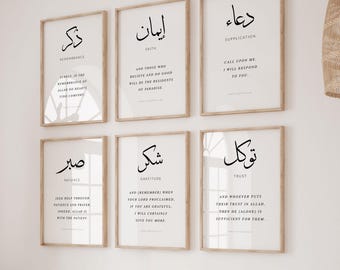 ذكر
REMEMBRANCE
SURELY, IN THE
REMEMBRANCE OF
ALLAH DO HEARTS
FIND COMFORT
إيمان
FAITH
AND THOSE WHO
BELIEVE AND DO GOOD
WILL BE THE RESIDENTS
OF PARADISE.
دعاء
SUPPLICATION
CALL UPON ME,
I WILL RESPOND
TO YOU
صبر
PATIENCE
SEEK HELP THROUGH
PATIENCE AND PRAYER
INDEED, ALLAH IS
WITH THE PATIENT.
شكر
GRATITUDE
AND (REMEMBER) WHEN
YOUR LORD PROCLAIMED,
IF YOU ARE GRATEFUL,
I WILL CERTAINLY
GIVE YOU MORE.
توكل
TRUST
AND WHOEVER PUTS
THEIR TRUST IN ALLAH,
THEN HE (ALONE) IS
SUFFICIENT FOR THEM.